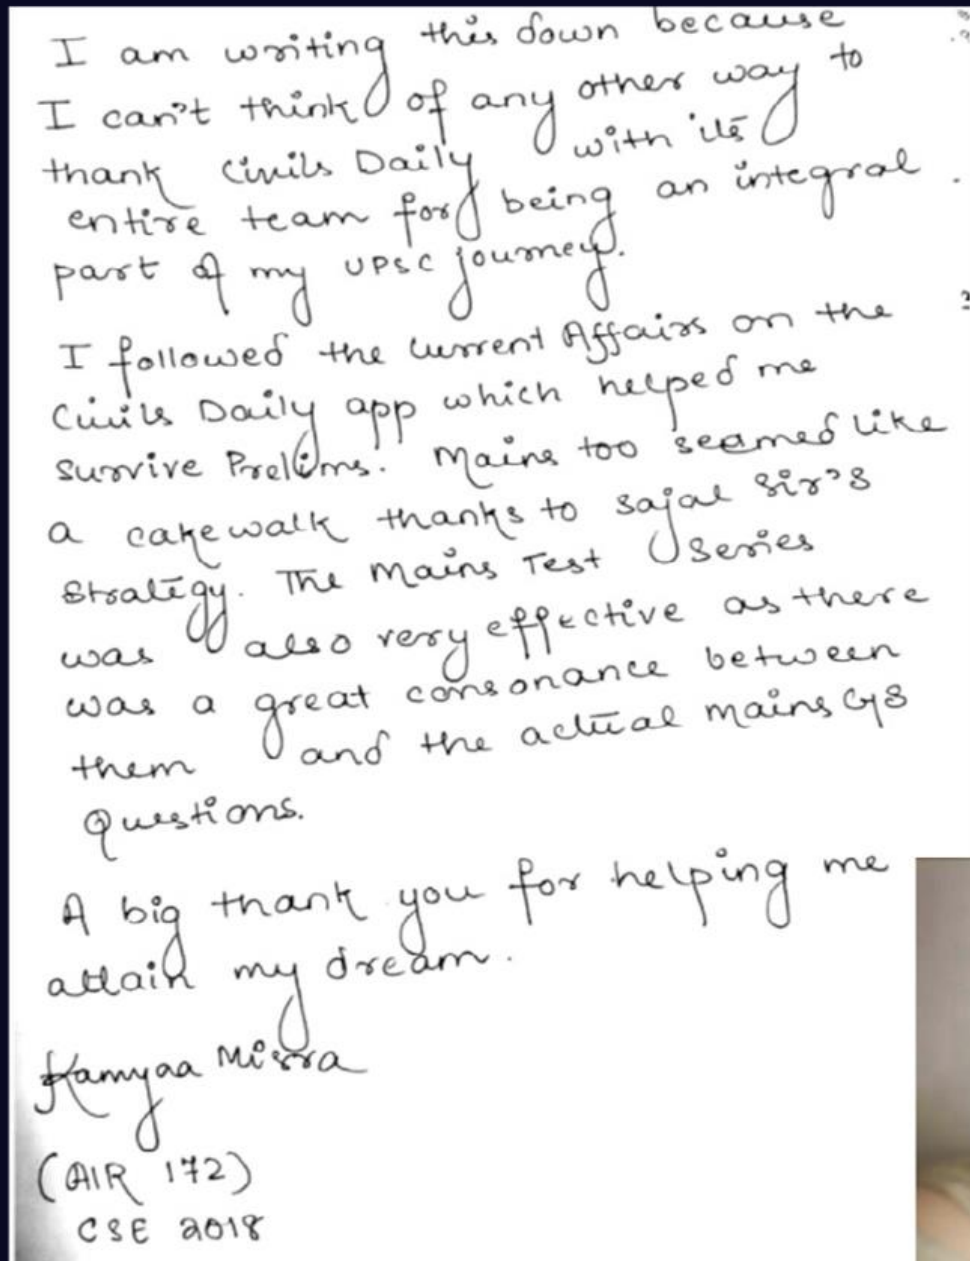 I am writing this down because
I can't think of any other way to
thank Civils Daily with its
entire team for being an integral
part of my UPSC journey.
I followed the Current Affairs on the
Civils Daily app which helped me
survive Prelims. Mains too seamed like
a cakewalk thanks to Sajal Sir's
Strategy. The Mains Test Series
was also very effective as there
was a great consonance between
them and the actual mains GS
Questions.
A big thank you for helping me
attain my dream.
Kamyaa Misra
(AIR 172)
CSE 2018